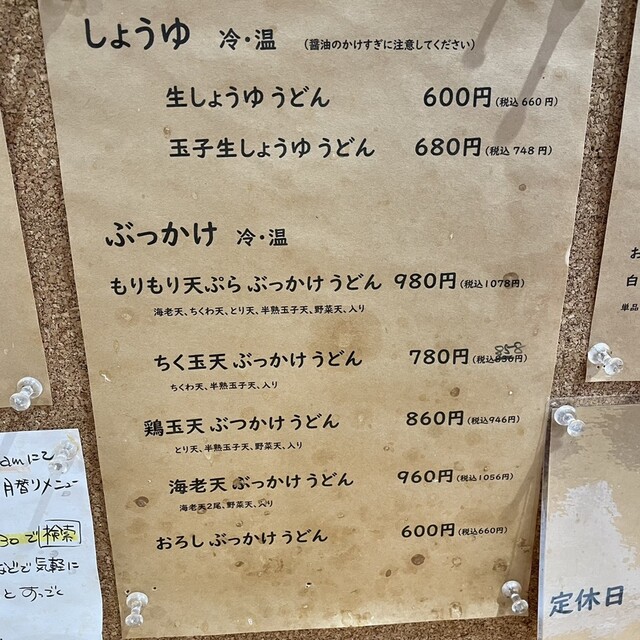 しょうゆ 冷・温 (醤油のかけすぎに注意してください)
生しょうゆうどん 600円(税込 660円)
玉子生しょうゆうどん 680円(税込 748円)
ぶっかけ 冷・温
もりもり天ぷら ぶっかけうどん 980円(税込1078円)
海老天、ちくわ天、とり天、半熟玉子天、野菜天、入り
ちく玉天 ぶっかけうどん 780円(税込836円)
858
ちくわ天、半熟玉子天、入り
鶏玉天 ぶつかけうどん 860円(税込946円)
とり天、半熟玉子天、野菜天、入り
海老天 ぶっかけうどん 960円(税込1056円)
海老天2尾、野菜天、入り
おろし ぶっかけうどん 600円(税込660円)
amにて
月替りメニュー
30で検索
などで気軽に
とすっごく
お
白
単品
定休日